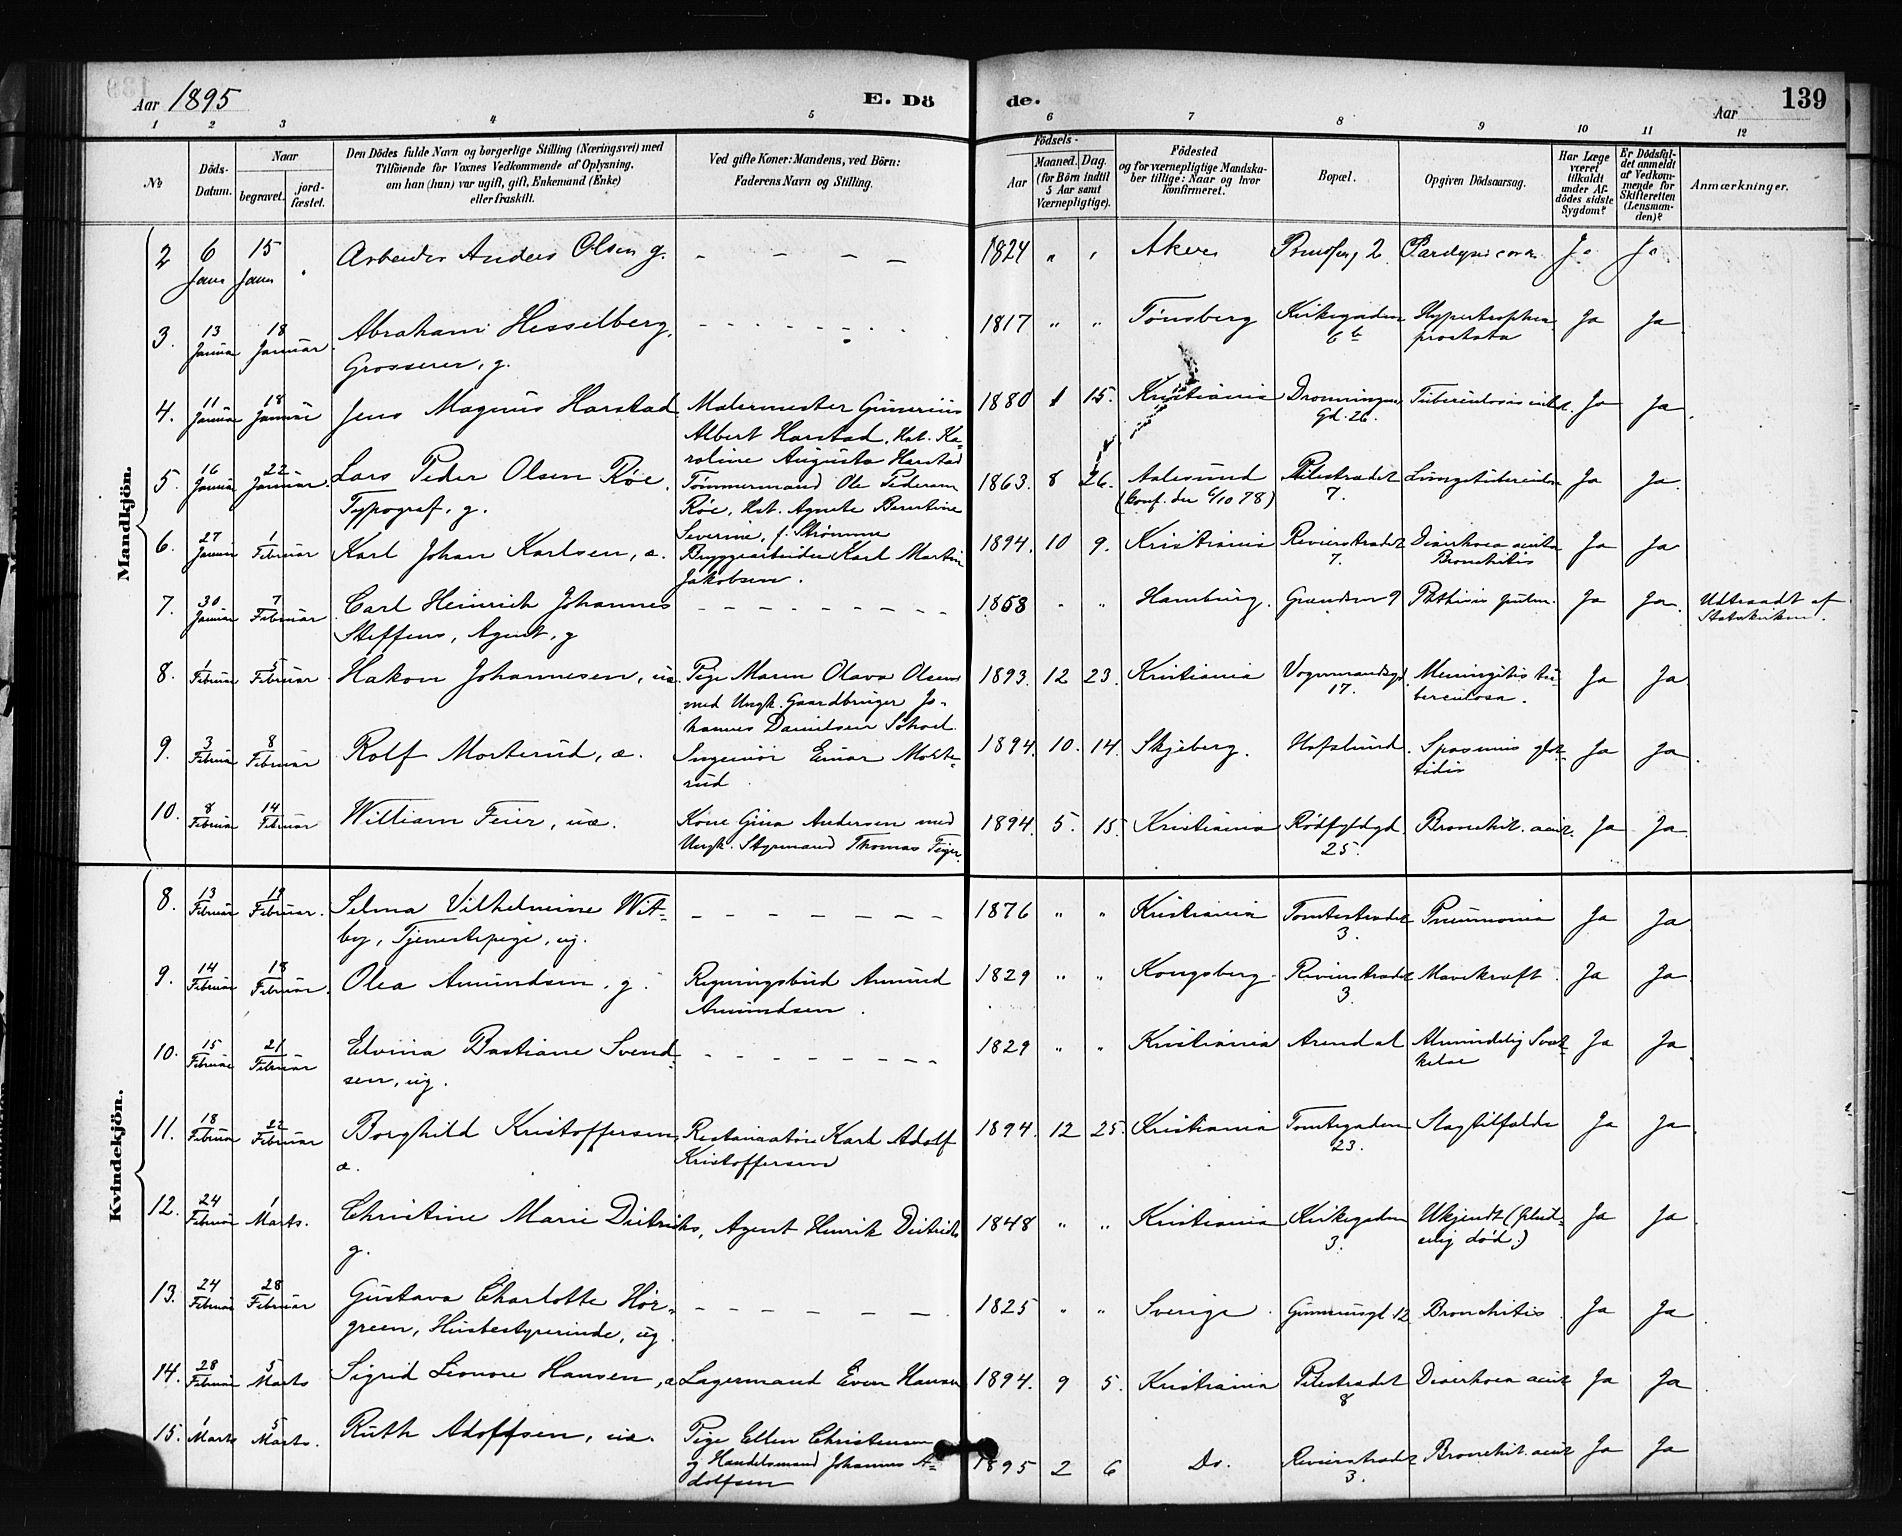 Aar 1895
E. Dö
de.
Aar
139
1 2 3 4 5 6 7 8 9 10 11 12
No
Döds-Datum.
Naar
begravet. jord-fæstet.
Den Dödes fulde Navn og borgerlige Stilling (Næringsvei) med
Tilföiende for Voxnes Vedkommende af Oplysning,
om han (hun) var ugift, gift, Enkemand (Enke)
eller fraskilt.
Ved gifte Koner: Mandens, ved Börn:
Faderens Navn og Stilling.
Födsels-
Aar
Maaned. Dag.
(for Börn indtil
5 Aar samt
Værnepligtige).
Födested
og for værnepligtige Mandska-
ber tillige: Naar og hvor
konfirmeret.
Bopæl.
Opgiven Dödsaarsag.
Har Læge
været
tilkaldt
under Af-
dödes sidste
Sygdom?
Er Dödsfal-
det anmeldt
af Vedkom-
mende for
Skifteretten
(Lensman-
den)?
Anmærkninger.
Mandkjön.
2 6 Janr 15 Janr " Arbeider Anders Olsen g. – – – – 1824 " " Aker 2 Ja Ja
3. 13 Januar 18 Januar. Abraham Hesselberg, – – – – 1817 " " Tønsberg Kirkegaden Hypertrophia Ja Ja.
Grosserer, g. 6b prostata
4. 11 Januar 18 Januar Jens Magnus Harstad Malermester Gunerius 1880 1 15. Kristiania Dronningens Tuberculosis Ja Ja.
Albert Harstad, Hst. Ka- Gd. 26.
roline Augusta Harstad
5. 16 Januar 22 Januar. Lars Peder Olsen Röe, Tömmermand Ole Pedersen 1863. 8 26. Aalesund Pilestrædet Lungetuberculose Ja Ja.
Typograf, g. Röe, Hst. Agnete Berentine (konf. den 6/10 78) 7.
Severine, f. Strömme
6. 27 Januar 1 Februar Karl Johan Karlsen, æ. Bryggearbeider Karl Martin 1894. 10 9. Kristiania Revierstrædet Diarrhoea acuta Ja Ja
Jakobsen. 7. Bronchitis
7. 30 Januar 7 Februar Carl Heinrich Johannes – – – – 1858 " " Hamburg. Grændsen 9 Phthisis pulm. Ja Ja. Udtraadt af
Steffens, Agent, g Statskirken.
8. 1 Februar 5 Februar Hakon Johannesen, uæ. Pige Maren Olava Olsen 1893. 12 23. Kristiania Vognmandsgd. Meningitis tu- Ja Ja.
med Ungk. Gaardbruger Jo- 17. berculosa.
hannes Danielsen
9. 3 Februar 8 Februar Rolf Morterud, æ. Ingeniör Einar Morte- 1894. 10. 14. Skjeberg. Hafslund. Spasmus glot- Ja Ja
rud tidis
10. 8 Februar 14 Februar William Feier, uæ. Kone Gina Andersen med 1894. 5. 15. Kristiania Rödfyldgd. Bronchit. acut. Ja Ja
Ungk. Styrmand Thomas Feier. 25.
Kvindekjön.
8. 13 Februar 19 Februar. Selma Vilhelmine Wit- – – – – 1876 " " Kristiania Tomtestrædet Pneumonia Ja Ja
by, Tjenestepige, ug. 3.
9. 14 Februar 18 Februar. Olea Amundsen, g. Regningsbud Amund 1829 " " Kongsberg Revierstrædet Mavekræft. Ja Ja.
Amundsen. 3.
10. 15 Februar 21 Februar Elvina Bastiane Svend- – – – – 1829 " " Kristiania Arendal Almindelig Svæk- Ja Ja.
sen, ug. kelse
11. 18 Februar 22 Februar Borghild Kristoffersen, Restauratör Karl Adolf 1894. 12 25. Kristiania Tomtegaden Slagtilfælde Ja Ja.
æ. Kristoffersen 23.
12. 24 Februar 1 Marts. Christine Marie Dietrichs, Agent Henrik Dietrichs 1848 " " Kristiania Kirkegaden Ukjendt (plud- Ja Ja
g. 3. selig död.)
13. 24 Februar 28 Februar Gustava Charlotte Hör- – – – – 1825 " " Sverige. Gunnerusgd 12 Bronchitis Ja Ja
green, Husbestyrerinde, ug.
14. 28 Februar 5 Marts Sigrid Leonore Hansen, æ Lagermand Even Hansen 1894. 9 5. Kristiania Pilestrædet Diarrhoea acut Ja Ja
8
15. 1 Marts 5 Marts. Ruth Adolfsen, uæ. Pige Ellen Christensen 1895 2 6 Do. Revierstrædet Bronchit. acut Ja Ja
og Handelsmand Johannes A- 3.
dolfsen